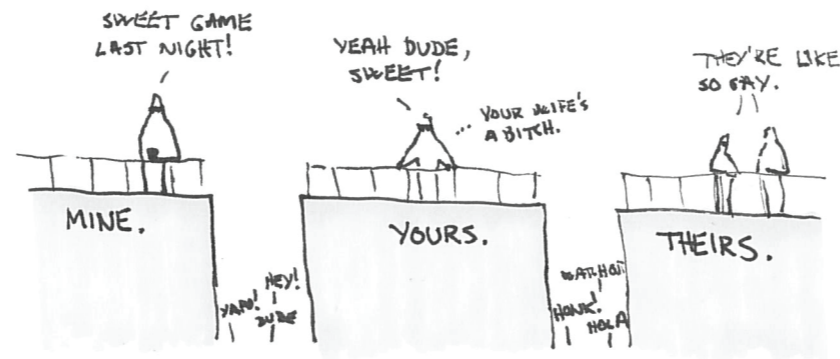 SWEET GAME
LAST NIGHT!
YEAH DUDE,
SWEET!
... YOUR WIFE'S
A BITCH.
THEY'RE LIKE
SO GAY.
MINE.
YOURS.
THEIRS.
HEY!
DUDE
HONK!
HOLA